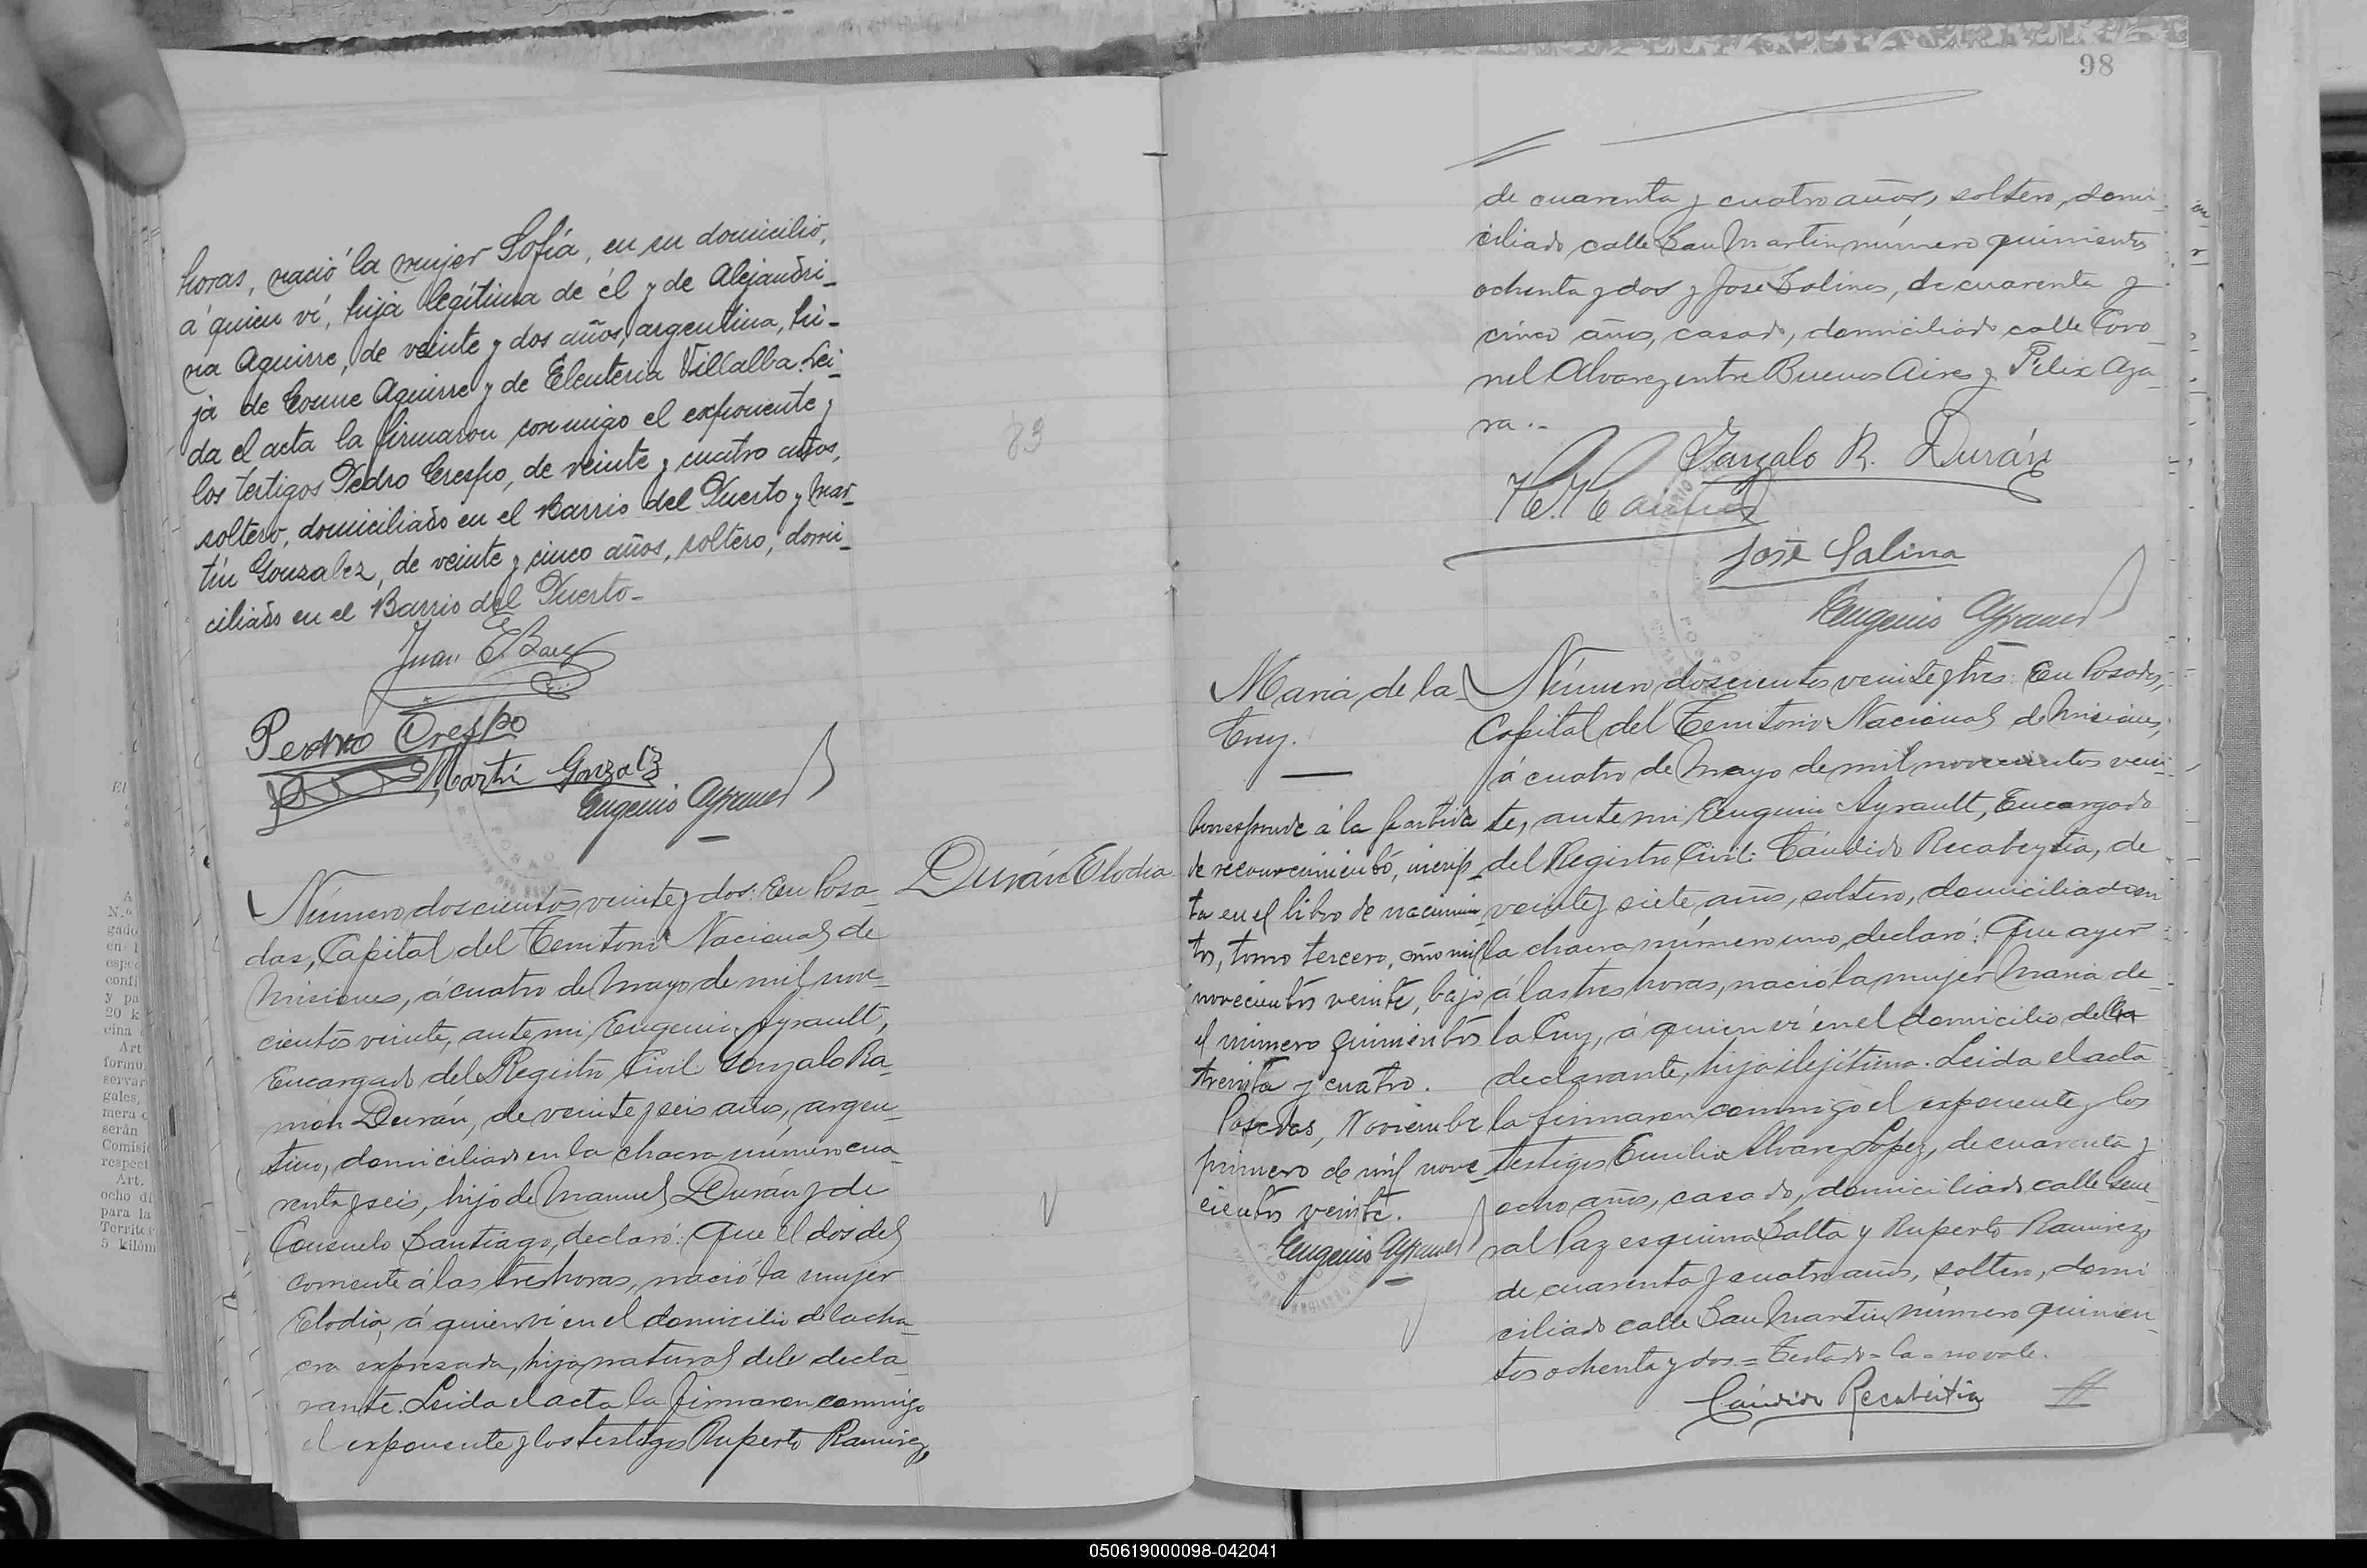 horas, nació la mujer Sofía, en su domicilio,
á quien ví, hija legítima de él y de Alejandri-
na Aguirre, de veinte y dos años, argentina, hi-
ja de Cosme Aguirre y de Eleuteria Villalba. Lei-
da el acta la firmaron conmigo el exponente y
los testigos Pedro Crespo, de veinte y cuatro años,
soltero, domiciliado en el Barrio del Puerto y Mar-
tín Gonzalez, de veinte y cinco años, soltero, domi-
ciliado en el Barrio del Puerto-
Juan E. Baez
Pedro Crespo
Martín Gonzalez
Eugenio Ayrault
83
Durán Elodia
Número doscientos veinte y dos: En Posa-
das, Capital del Territorio Nacional de
Misiones, á cuatro de Mayo de mil nove-
cientos veinte, ante mi, Eugenio Ayrault,
Encargado del Registro Civil: Gonzalo Ra-
món Durán, de veinte y seis años, argen-
tino, domiciliado en la chacra número cua-
renta y seis, hijo de Manuel Durán y de
Consuelo Santiago, declaró: Que el dos del
corriente á las tres horas, nació la mujer
Elodia, á quien ví en el domicilio de la cha-
cra expresada, hija natural del decla-
rante. Leida el acta la firmaron conmigo
el exponente y los testigos Ruperto Ramirez,
98
de cuarenta y cuatro años, soltero, domi-
ciliado calle San Martin número quinientos
ochenta y dos y José Salinas, de cuarenta y
cinco años, casado, domiciliado calle Coro-
nel Alvarez entre Buenos Aires y Felix Aza-
ra.-
Gonzalo R. Durán
José Salina
Eugenio Ayrault
María de la
Cruz.
Corresponde á la partida
de reconocimiento, inscrip-
ta en el libro de nacimien
tos, tomo tercero, año mil
novecientos veinte, bajo
el número quinientos
treinta y cuatro.
Posadas, Noviembre
primero de mil nove-
cientos veinte.
Eugenio Ayrault
Número doscientos veinte y tres: En Posadas,
Capital del Territorio Nacional de Misiones,
á cuatro de Mayo de mil novecientos vein-
te, ante mi Eugenio Ayrault, Encargado
del Registro Civil: Cándido Recabeytia, de
veinte y siete años, soltero, domiciliado en
la chacra número uno, declaró: Que ayer
á las tres horas, nació la mujer Maria de
la Cruz, á quien ví en el domicilio del la
declarante, hija ilejítima. Leida el acta
la firmaron conmigo el exponente y los
testigos Emilio Alvarez Lopez, de cuarenta y
ocho años, casado, domiciliado calle Gene-
ral Paz esquina Salta y Ruperto Ramirez,
de cuarenta y cuatro años, soltero, domi
ciliado calle San Martin número quinien-
tos ochenta y dos.= Testado= la= no vale.
Cándido Recabeitia
050619000098-042041